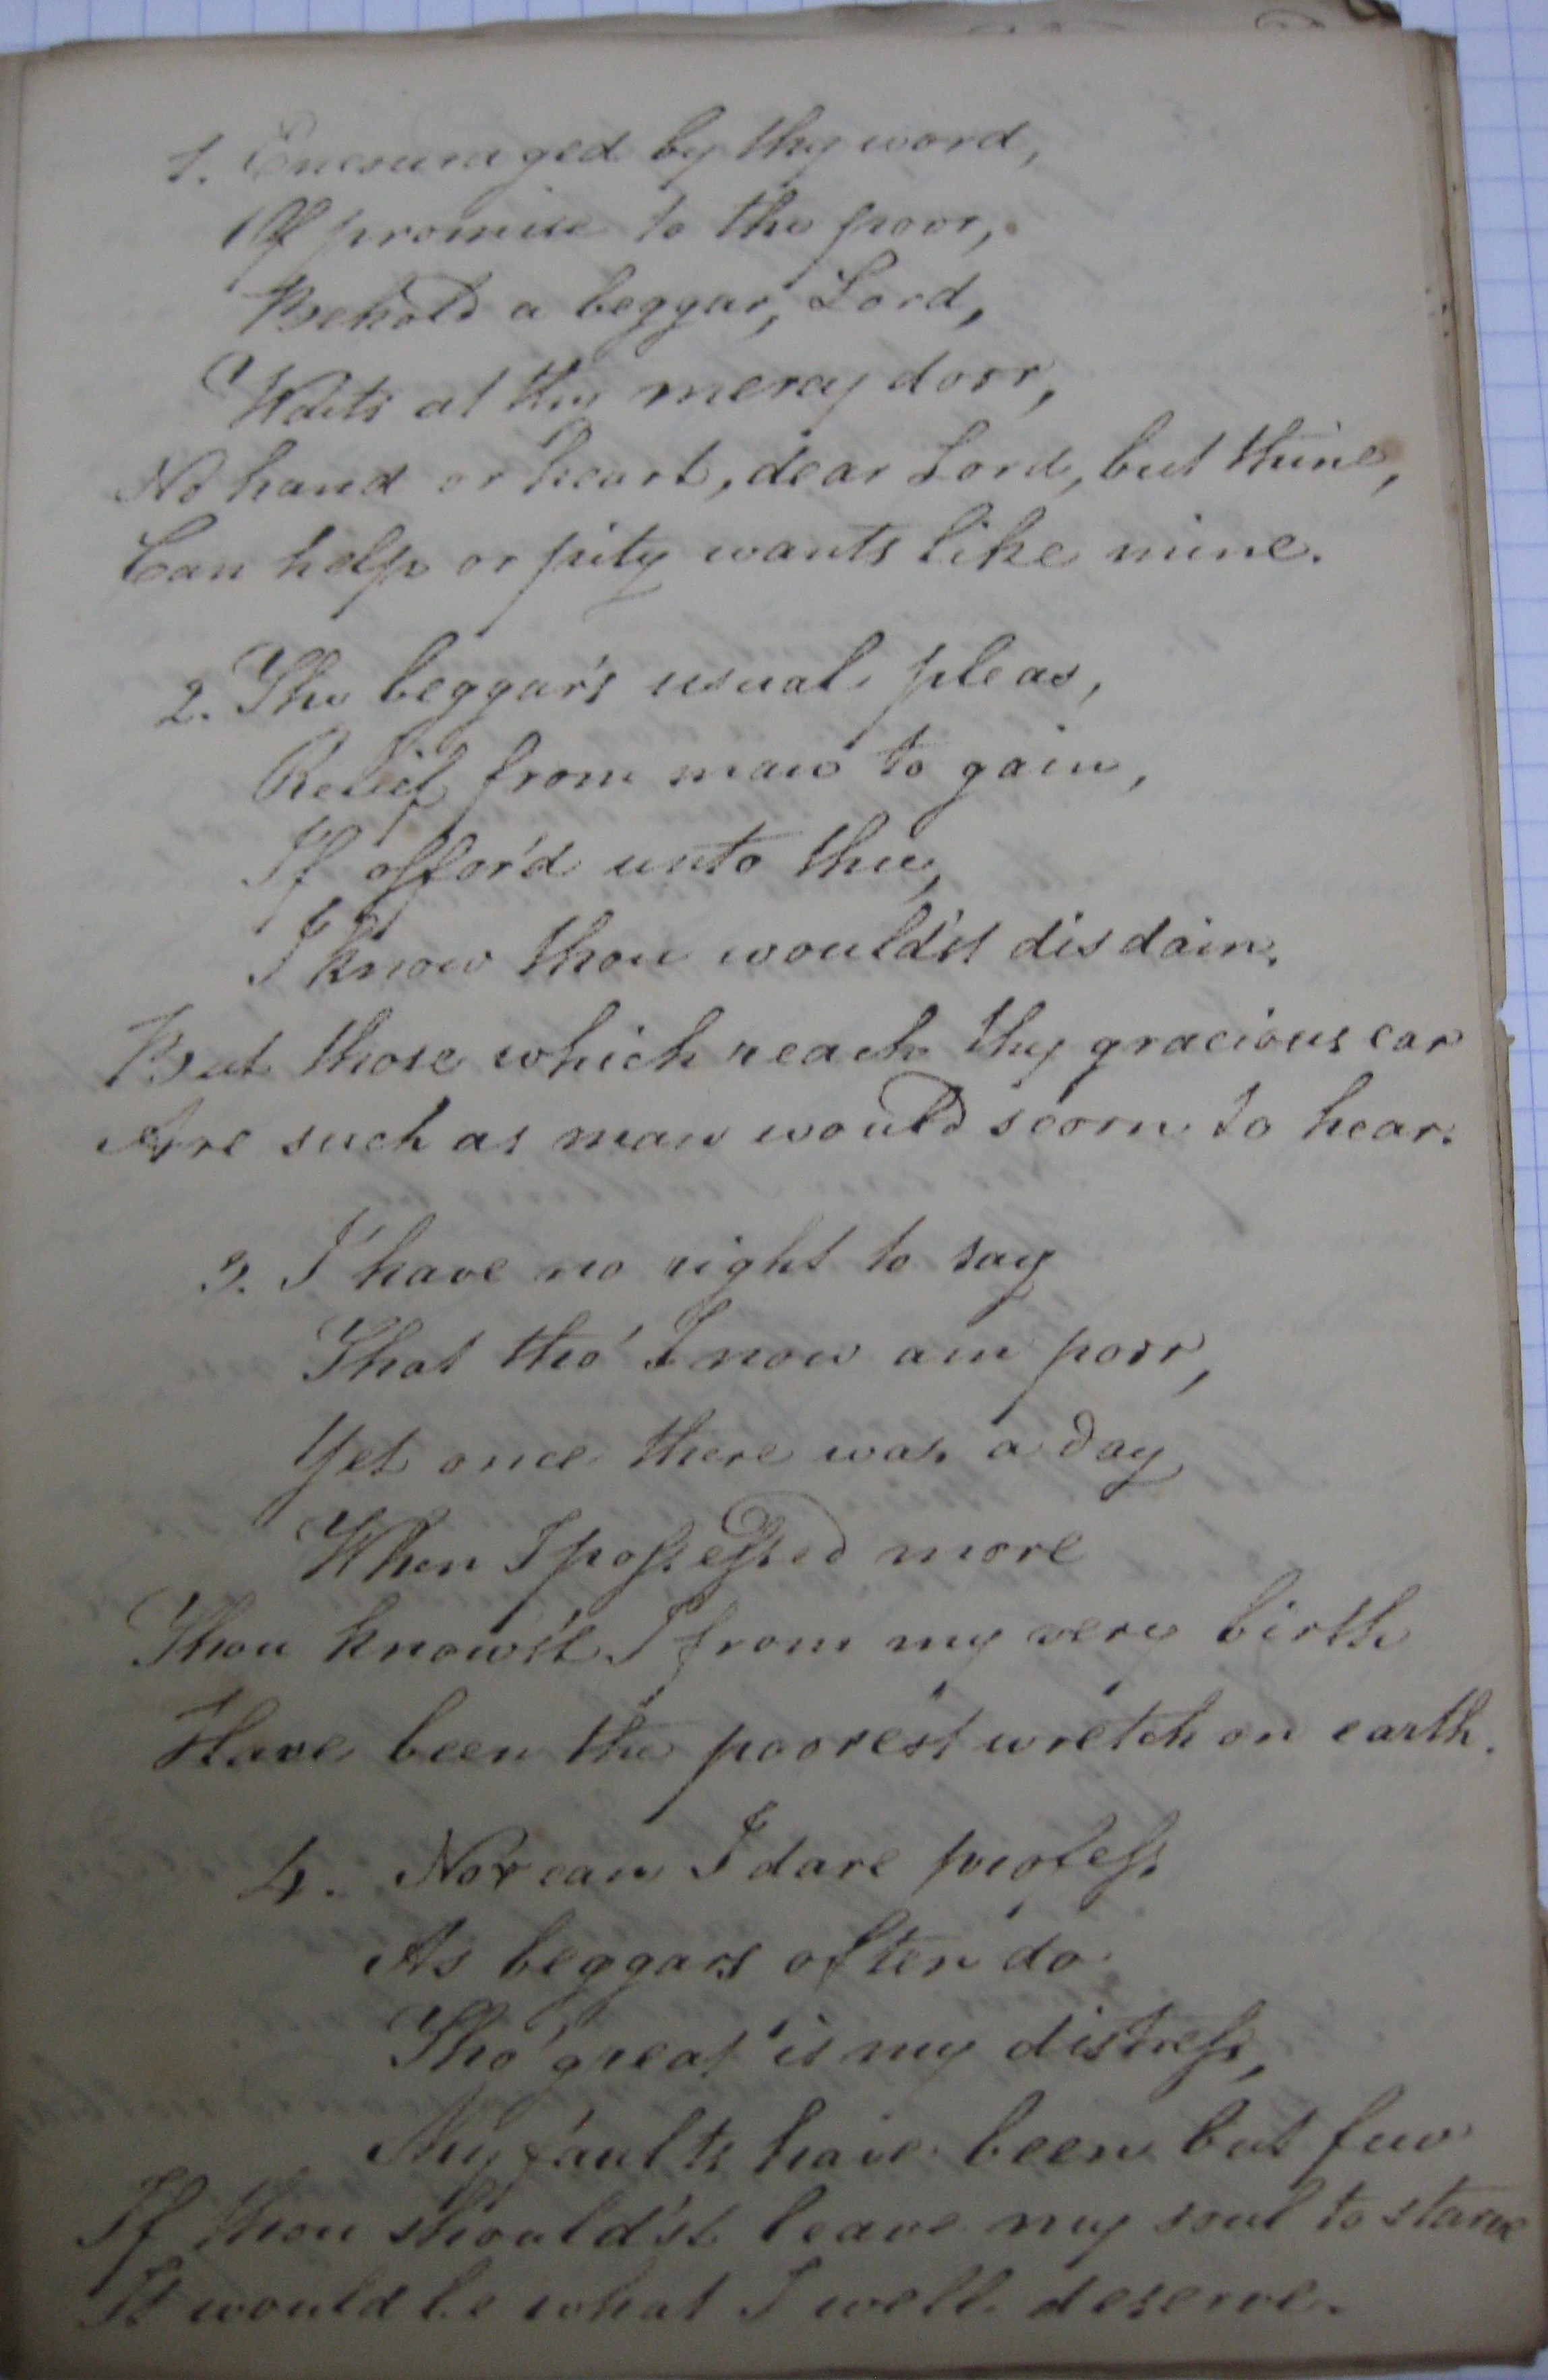 1. Encouraged by thy word,
Of promise to the poor,
Behold a beggar, Lord,
Waits at thy mercy door,
No hand or heart, dear Lord, but thine,
Can help or pity wants like mine.
2. The beggar's usual pleas,
Relief from man to gain,
If offor'd unto thee,
I know thou would'st disdain.
But those which reach thy gracious ear
Are such as man would scorn to hear.
3. I have no right to say
That tho' I now am poor,
Yet once there was a day
When I poſseſsed more
Thou know'st I from my very birth
Have been the poorest wretch on earth.
4. Nor can I dare profeſs
As beggars often do
Tho' great is my distreſs,
My faults have been but few
If thou should'st leave my soul to starve
It would be what I well deserve.